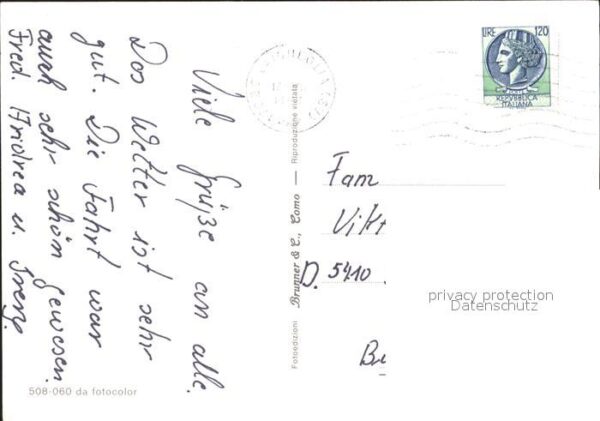 Viele Grüße an alle.
Das Wetter ist sehr
gut. Die Fahrt war
auch sehr schön gewesen.
Fred. Andrea u.
LIRE 120
REPVBBLICA
ITALIANA
Fotoedizioni Brunner & C., Como — Riproduzione vietata
Fam
D. 5410
privacy protection
Datenschutz
508-060 da fotocolor